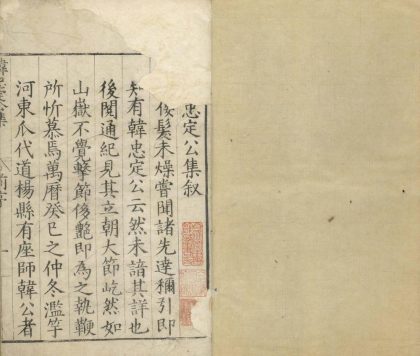 忠定公集叙
髮未燥嘗聞諸先達稱引即
知有韓忠定公云然未諳其詳也
後閱通紀見其立朝大節屹然如
山嶽不覺擊節後艷即為之執鞭
所忻慕焉萬曆癸巳之仲冬濫竽
河東瓜代道楊縣有座師韓公者